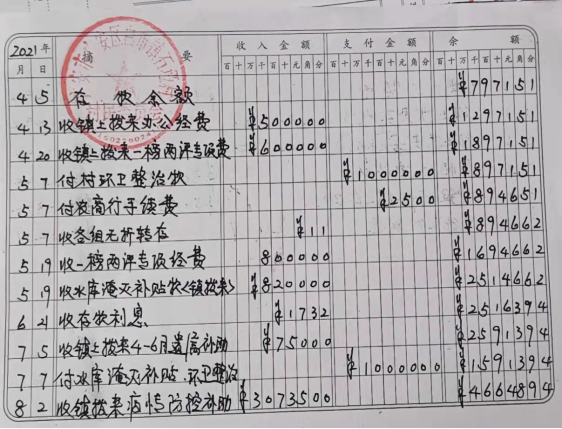 2021年 摘要 收入金额 支付金额 余额
月 日 百十万千百十元角分 百十万千百十元角分 百十万千百十元角分
4 5 存款余额 ¥797151
4 13 收镇上拨来办公经费 ¥500000 ¥1297151
4 20 收镇上拨来一榜两评专项费 ¥600000 ¥1897151
5 7 付村环卫整治款 ¥1000000 ¥897151
5 7 付农商行手续费 ¥2500 ¥894651
5 7 收各组无折转存 ¥11 ¥894662
5 19 收一榜两评专项经费 800000 ¥1694662
5 19 收水库淹没补贴款<镇拨来> ¥820000 ¥2514662
6 21 收存款利息 ¥1732 ¥2516394
7 5 收镇上拨来4-6月遗属补助 ¥75000 ¥2591394
7 7 付水库淹没补贴.环卫整治 ¥1000000 ¥1591394
8 2 收镇拨来疫情防控补助 ¥3073500 ¥4664894